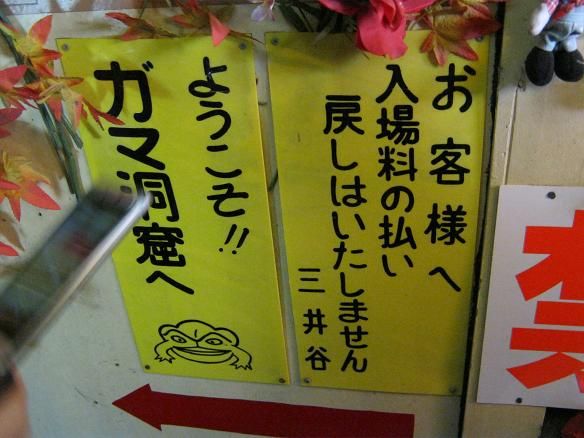 お客様へ
入場料の払い
戻しはいたしません
三井谷
ようこそ!!
ガマ洞窟へ
禁